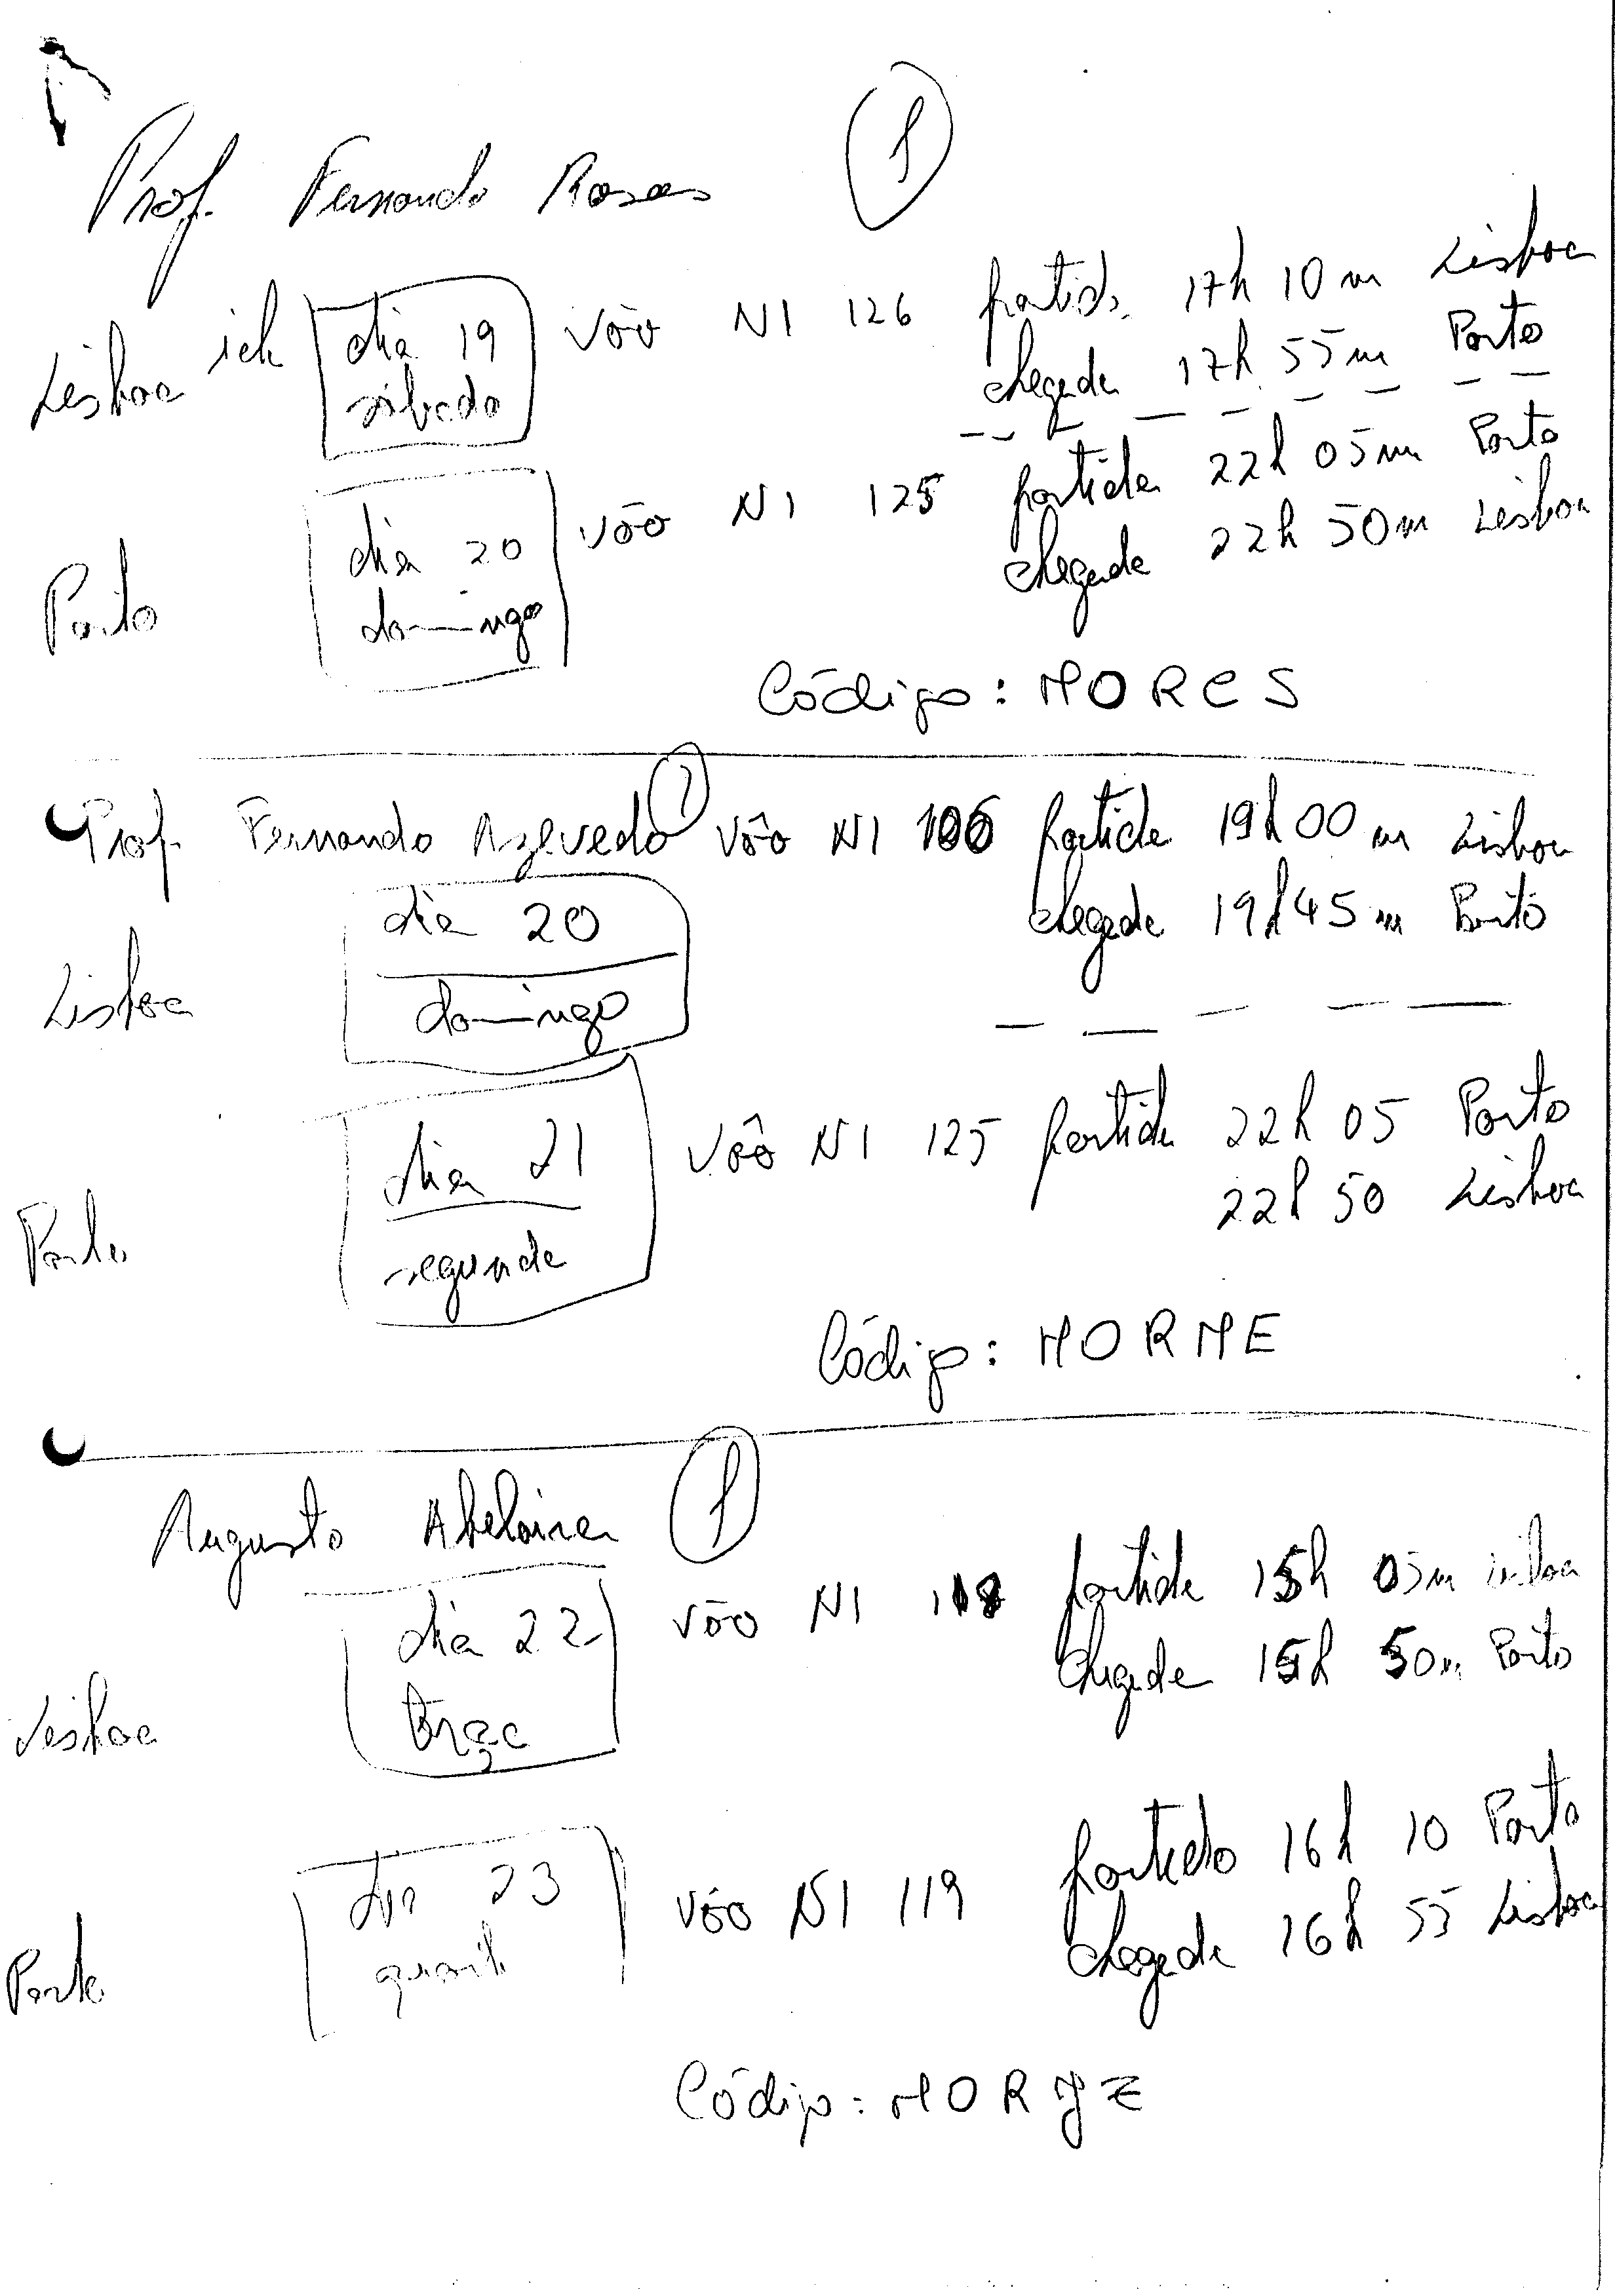 Prof. Fernando Rosas 1
Lisboa ida dia 19 sábado vôo NI 126 partida 17h 10m Lisboa
chegada 17h 55m Porto
Porto dia 20 domingo vôo NI 125 partida 22h 05m Porto
chegada 22h 50m Lisboa
Código: MORCS
Prof. Fernando Azevedo 1 vôo NI 106 partida 19h 00m Lisboa
dia 20 chegada 19h45m Porto
Lisboa domingo
dia 21 vôo NI 125 partida 22h 05 Porto
22h 50 Lisboa
Porto segunda
Código: MORME
Augusto Abelaira 1
dia 22 vôo NI 118 partida 15h 05m Lisboa
chegada 15h 50m Porto
Lisboa terça
dia 23 vôo NI 119 partida 16h 10 Porto
Porto quarta chegada 16h 55 Lisboa
Código: MORJZ